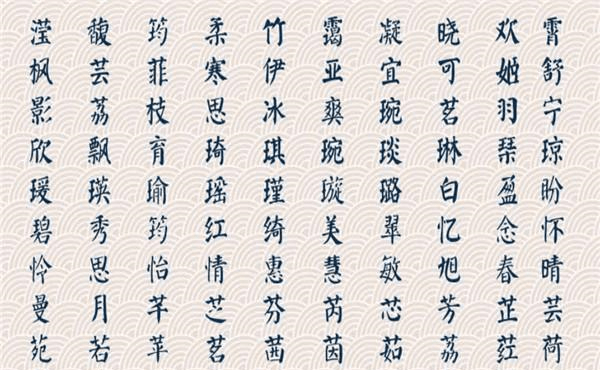 滢 馥 筠 柔 竹 霭 凝 晓 欢 霄
枫 芸 菲 寒 伊 亚 宜 可 姬 舒
影 荔 枝 思 冰 爽 琬 茗 羽 宁
欣 飘 育 琦 琪 琬 琰 琳 琴 琼
瑗 瑛 瑜 瑶 瑾 璇 璐 白 盈 盼
碧 秀 筠 红 绮 美 翠 忆 念 怀
怜 思 怡 情 惠 慧 敏 旭 春 晴
曼 月 芊 芝 芬 芮 芯 芳 芷 芸
苑 若 苹 茗 茜 茵 茹 荔 荭 荷